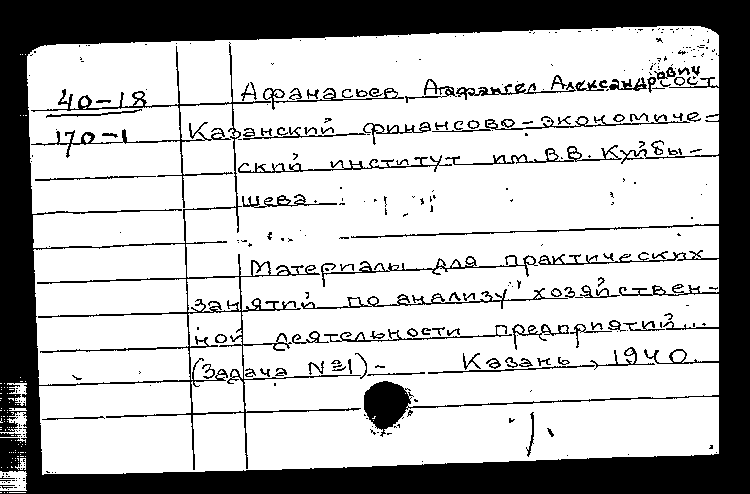 40-18
170-1
Афанасьев, Агафангел Александрович сост.
Казанский финансово-экономиче-
ский институт им. В.В. Куйбы-
шева.
Материалы для практических
занятий по анализу хозяйствен-
ной деятельности предприятий...
(Задача №1) - Казань, 1940.